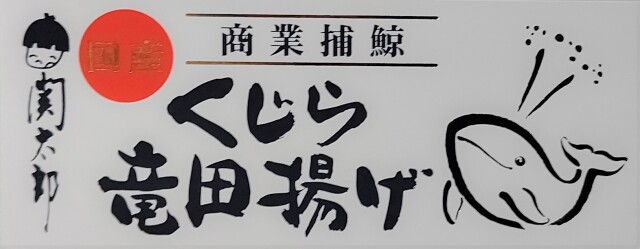 関太郎
国産
商業捕鯨
くじら
竜田揚げ